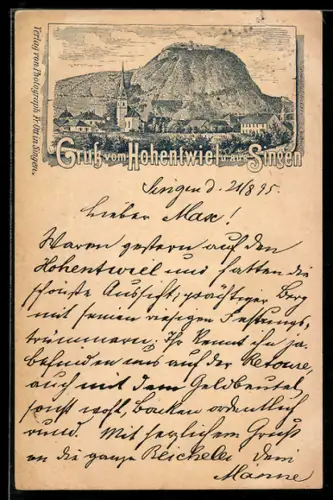 Verlag von Photograph P. Ott in Singen.
Gruß vom Hohentwiel u. aus Singen
Singen d. 21/8 95.
Lieber Max!
Waren gestern auf den
Hohentwiel und hatten die
schönste Aussicht; prächtiger Berg
mit seinen riesigen Festungs-
trümmern. Ihr kennt ihn ja.
befinden uns auf der Retour,
auch mit dem Geldbeutel,
sonst wohl, Backen ordentlich
rund. Mit herzlichem Gruss
an die ganze Reichelei Dein